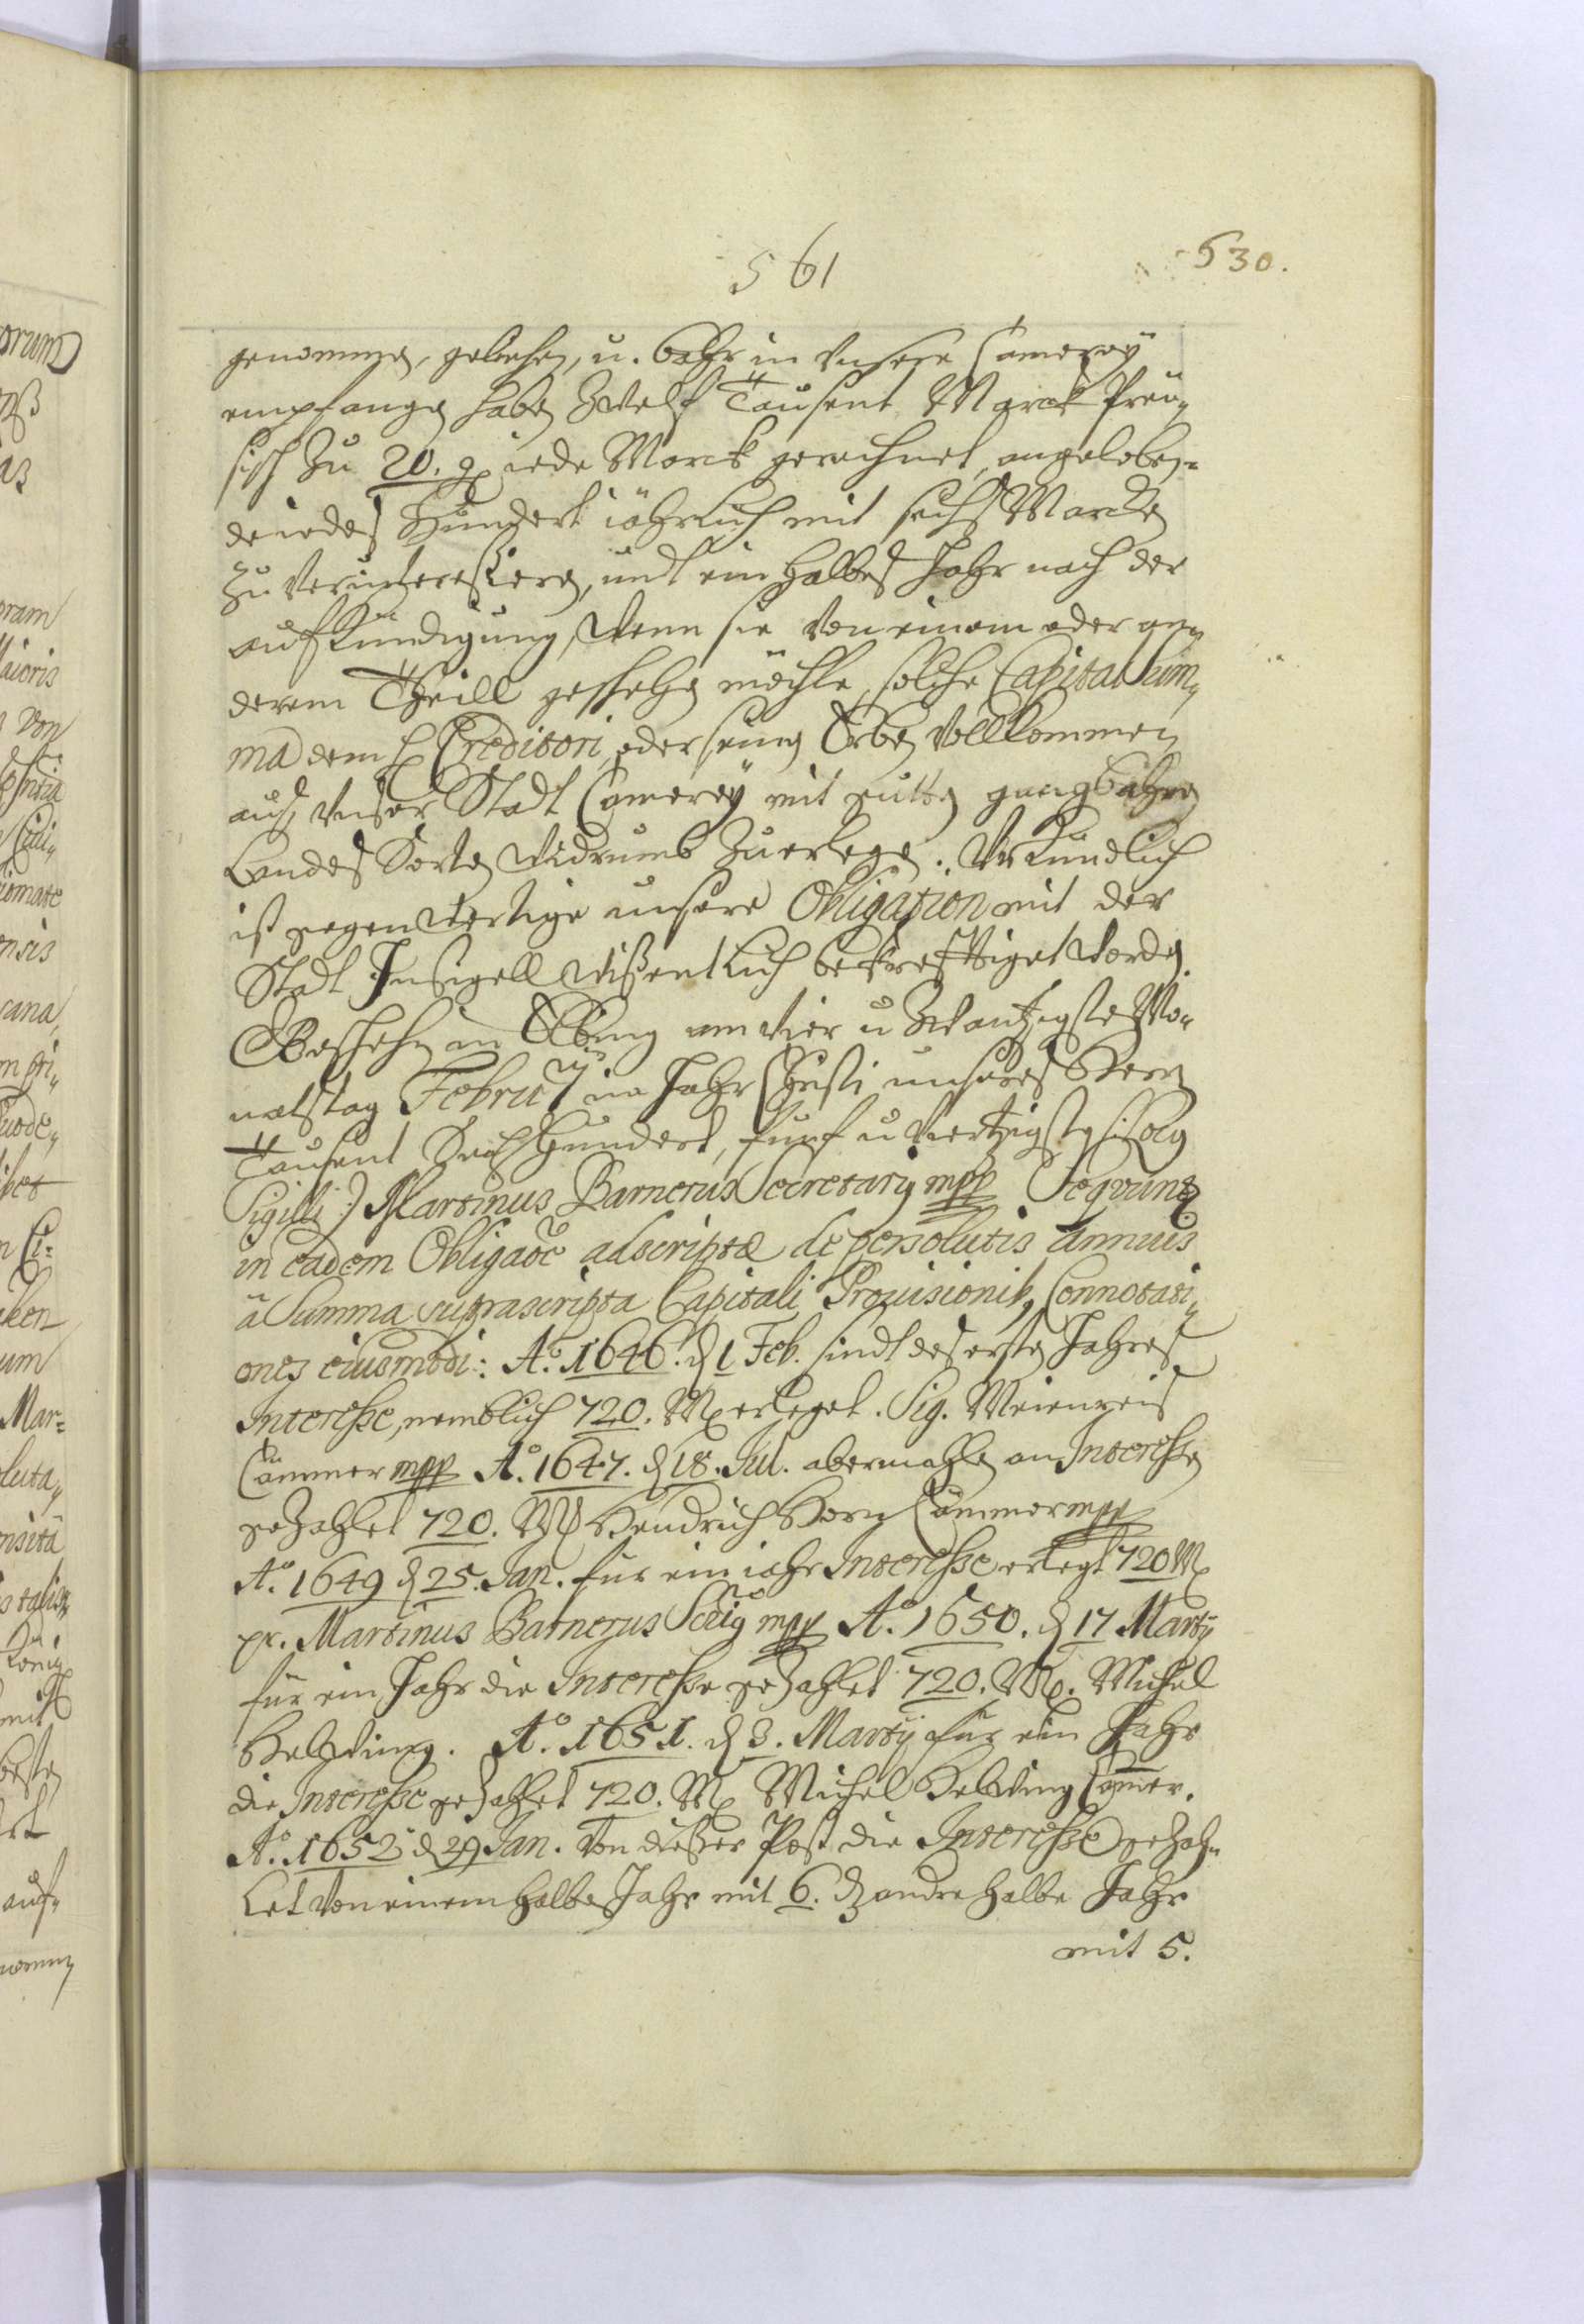 561
530.
genommen, geliehen, u. bahr in Unsere Camerey
empfangen haben Zwelf Tausent Marck Preu„
sisch zu 20. g. jede Marck gerechnet, angeloben„
de iedes Hundert iährlich mit sechs Marcken
zu verinteressieren, undt ein halbes Jahr nach der
aufkündigung, Wenn sie von einem oder an„
derem Theill geschehen möchte, solche Capital Sum„
ma dem H Creditori, oder seinen Erben vollkommen
aus Unser Stadt Camerey mit gutten gangbahren
Landes Sorten Widrumb zuerlegen. Urkundlich
ist gegenwertige unsere Obligation mit der
Stadt Insigell Wißentlich bekrefftiget worden.
Geschehen in Elbing am vier u Zwantzigsten Mo„
natstag Februarij im Jahr Christi unseres Herrn
Tausent Sechs Hundert, fünf u Viertzigsten. (: Locq
Sigilli :) Martinus Barnerus Secretariq mpp Seqvunt
in eadem Obligaõe adscriptæ de persolutis annuis
â Summa suprascripta Capitali Provisionib, Connotati„
ones eiusmodi: A.o 1646. d 1 Feb. sindt des ersten Jahres
Interesse, nemblich 720. M erleget. Sig. Meienreis
Cämmer mpp A.o 1647. d 18. Jul. abermahle an Interessen
gezahlet 720. M Hendrich Horn Cämmer mpp
A.o 1649 d 25. Jan. für ein iahr Interesse erlegt 720 M
pr. Martinus Barnerus Secrq mpp A.o 1650. d 17 Martij
für ein Jahr die Interesse gezahlet 720. M. Michel
Helwing. A.o 1651. d 3. Martij für ein Jahr
die Interesse gezahlet 720. M Michel Helwing Cammer.
A.o 1652 d 29 Jan. Von dieser Post die Interesse gezah„
let von einem halben Jahr mit 6. dz andre halbe Jahr
mit 5.